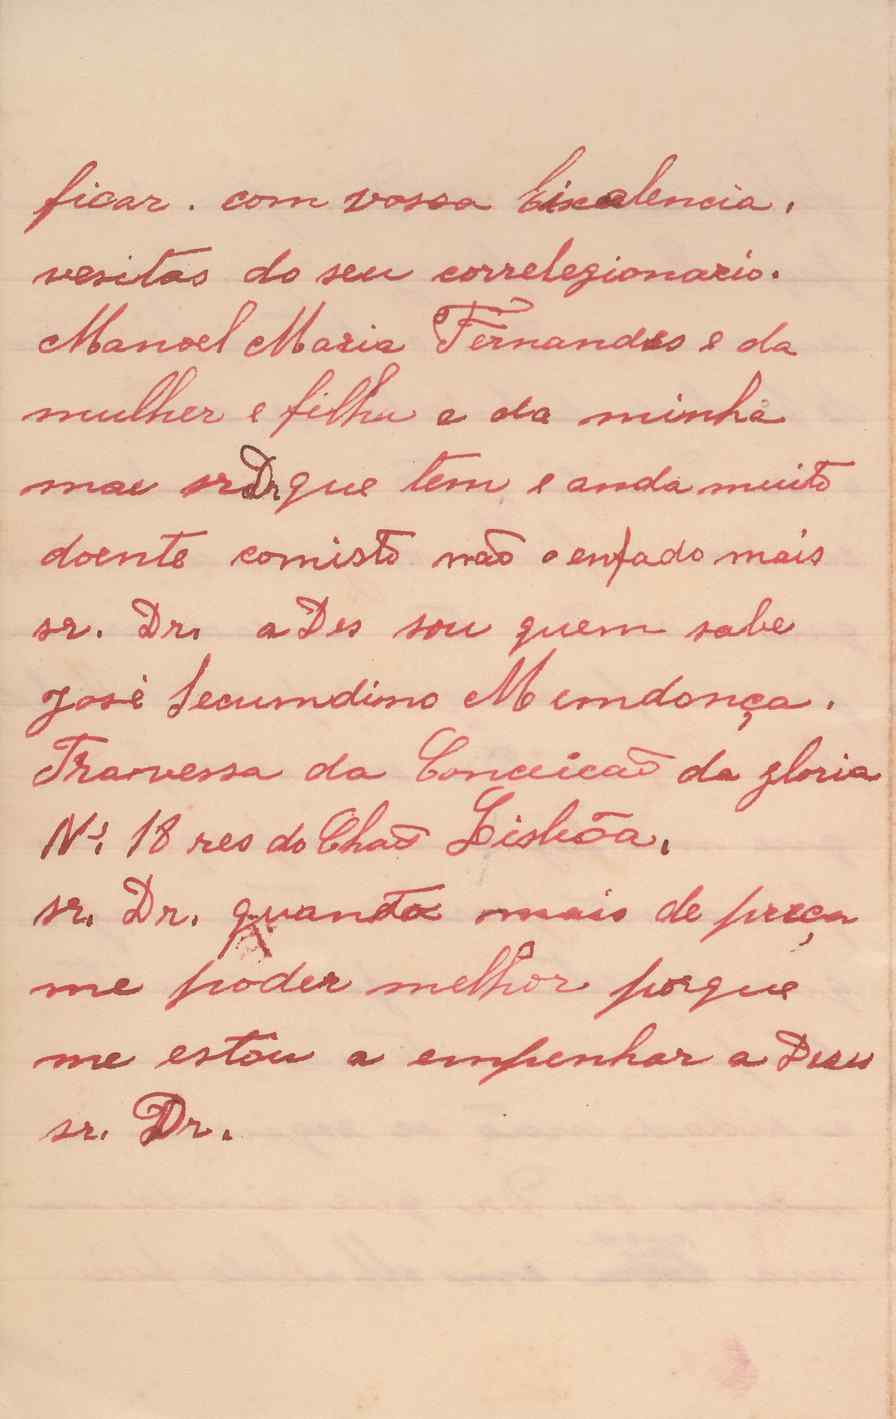 ficar. com vossa Eixalencia,
vesitas do seu correlegionario.
Manoel Maria Fernandes e da
mulher e filha e da minha
mae sr Dr que tem e anda muito
doente comisto não o enfado mais
sr. Dr. a Des sou quem sabe
José Secumdino Memdonça.
Travessa da Conceicaõ da gloria
Nº 18 res do Chaõ Lisbõa.
sr. Dr. quanto mais de preça
me poder melhor porque
me estou a empenhar a Deus
sr. Dr.